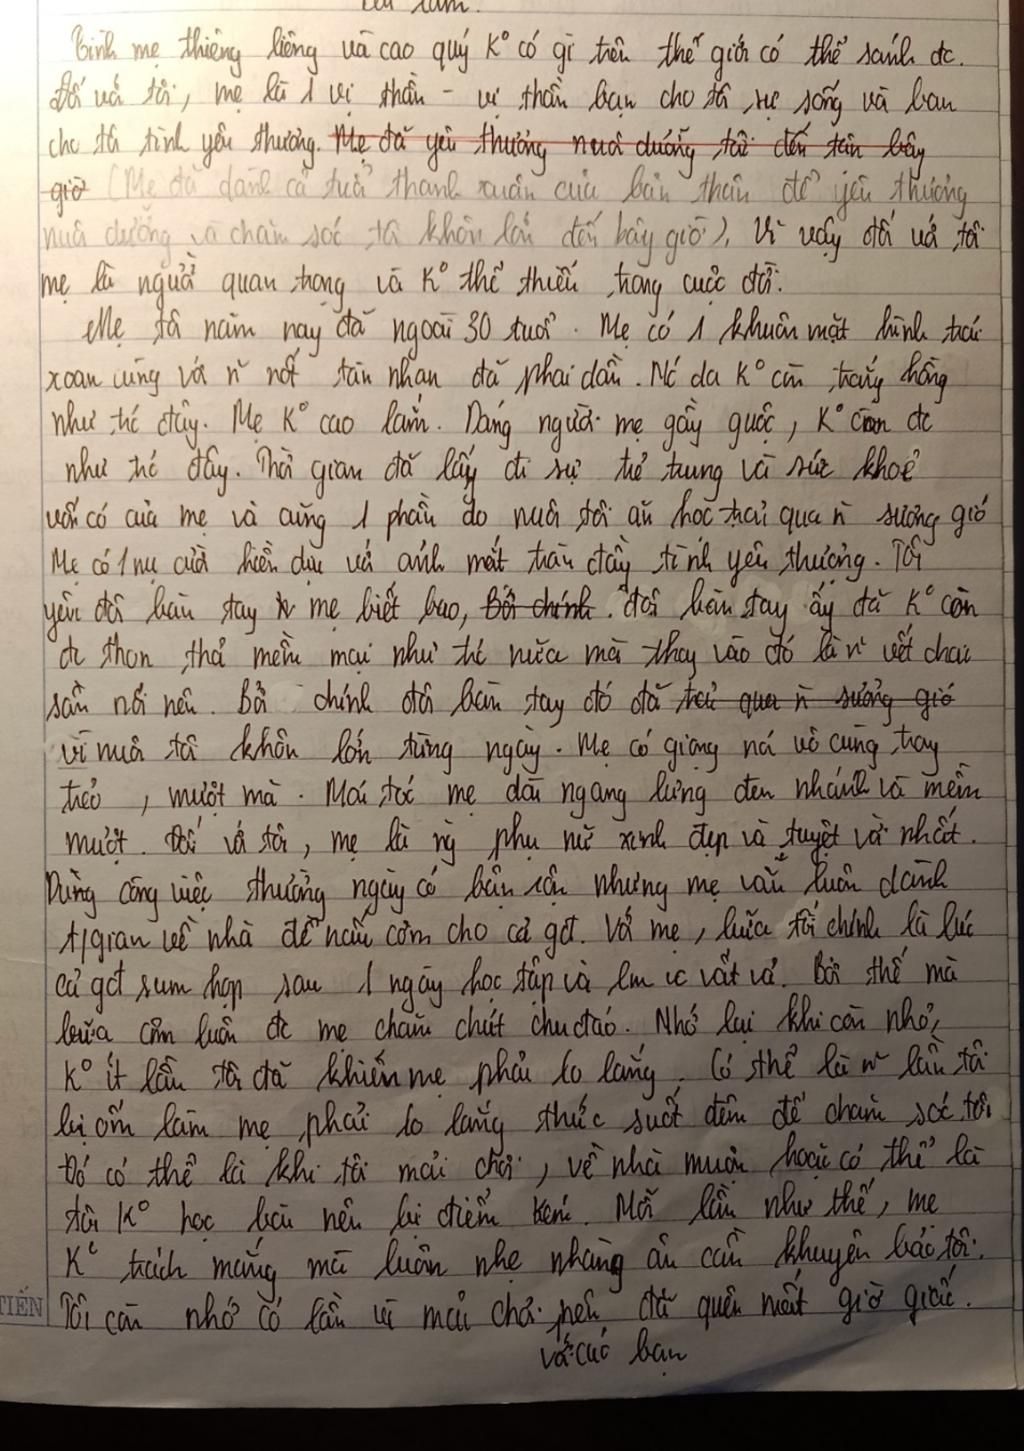 Tình mẹ thiêng liêng và cao quý K° có gì trên thế giới có thể sánh đc.
Đối với tôi, mẹ là 1 vị thần - vị thần ban cho tôi sự sống và ban
cho tôi tình yêu thương. Mẹ đã yêu thương nuôi dưỡng tôi đến tận bây
giờ (Mẹ đã dành cả tuổi thanh xuân của bản thân để yêu thương
nuôi dưỡng và chăm sóc tôi khôn lớn đến bây giờ). Vì vậy đối với tôi
mẹ là người quan trọng và K° thể thiếu trong cuộc đời.
Mẹ tôi năm nay đã ngoài 30 tuổi. Mẹ có 1 khuôn mặt hình trái
xoan cùng với n~ nốt tàn nhan đã phai dần. Nó da K° còn trắng hồng
như trc đây. Mẹ K° cao lắm. Dáng người mẹ gầy guộc, K° còn đc
như trc đây. Thời gian đã lấy đi sự trẻ trung và sức khoẻ
vốn có của mẹ và cũng 1 phần do nuôi tôi ăn học trải qua n~ sương gió
Mẹ có 1 nụ cười hiền dịu với ánh mắt tràn đầy tình yêu thương. Tôi
yêu đôi bàn tay mẹ biết bao, Bởi chính. đôi bàn tay ấy đã K° còn
đc thon thả mềm mại như trc nữa mà thay vào đó là n~ vết chai
sần nổi nên. Bởi chính đôi bàn tay đó đã trải qua n~ sương gió
vì nuôi tôi khôn lớn từng ngày. Mẹ có giọng nói vô cùng trong
trẻo, mượt mà. Mái tóc mẹ dài ngang lưng đen nhánh và mềm
mượt. Đối với tôi, mẹ là ng phụ nữ xinh đẹp và tuyệt vời nhất.
Dùng công việc thường ngày có bận rộn nhưng mẹ vẫn luôn dành
t/gian về nhà để nấu cơm cho cả gđ. Với mẹ, bữa tối chính là lúc
cả gđ sum họp sau 1 ngày học tập và lm vc vất vả. Bởi thế mà
bữa cơm luôn đc mẹ chăm chút chu đáo. Nhớ lại khi còn nhỏ,
K° ít lần tôi đã khiến mẹ phải lo lắng. Có thể là n~ lần tôi
bị ốm làm mẹ phải lo lắng thức suốt đêm để chăm sóc tôi.
Đó có thể là khi tôi mải chơi, về nhà muộn hoặc có thể là
tôi K° học bài nên bị điểm kém. Mỗi lần như thế, mẹ
K° trách mắng mà luôn nhẹ nhàng ân cần khuyên bảo tôi.
TIẾN
Tôi còn nhớ có lần vì mải chơi nên đã quên mất giờ giấc.
với các bạn